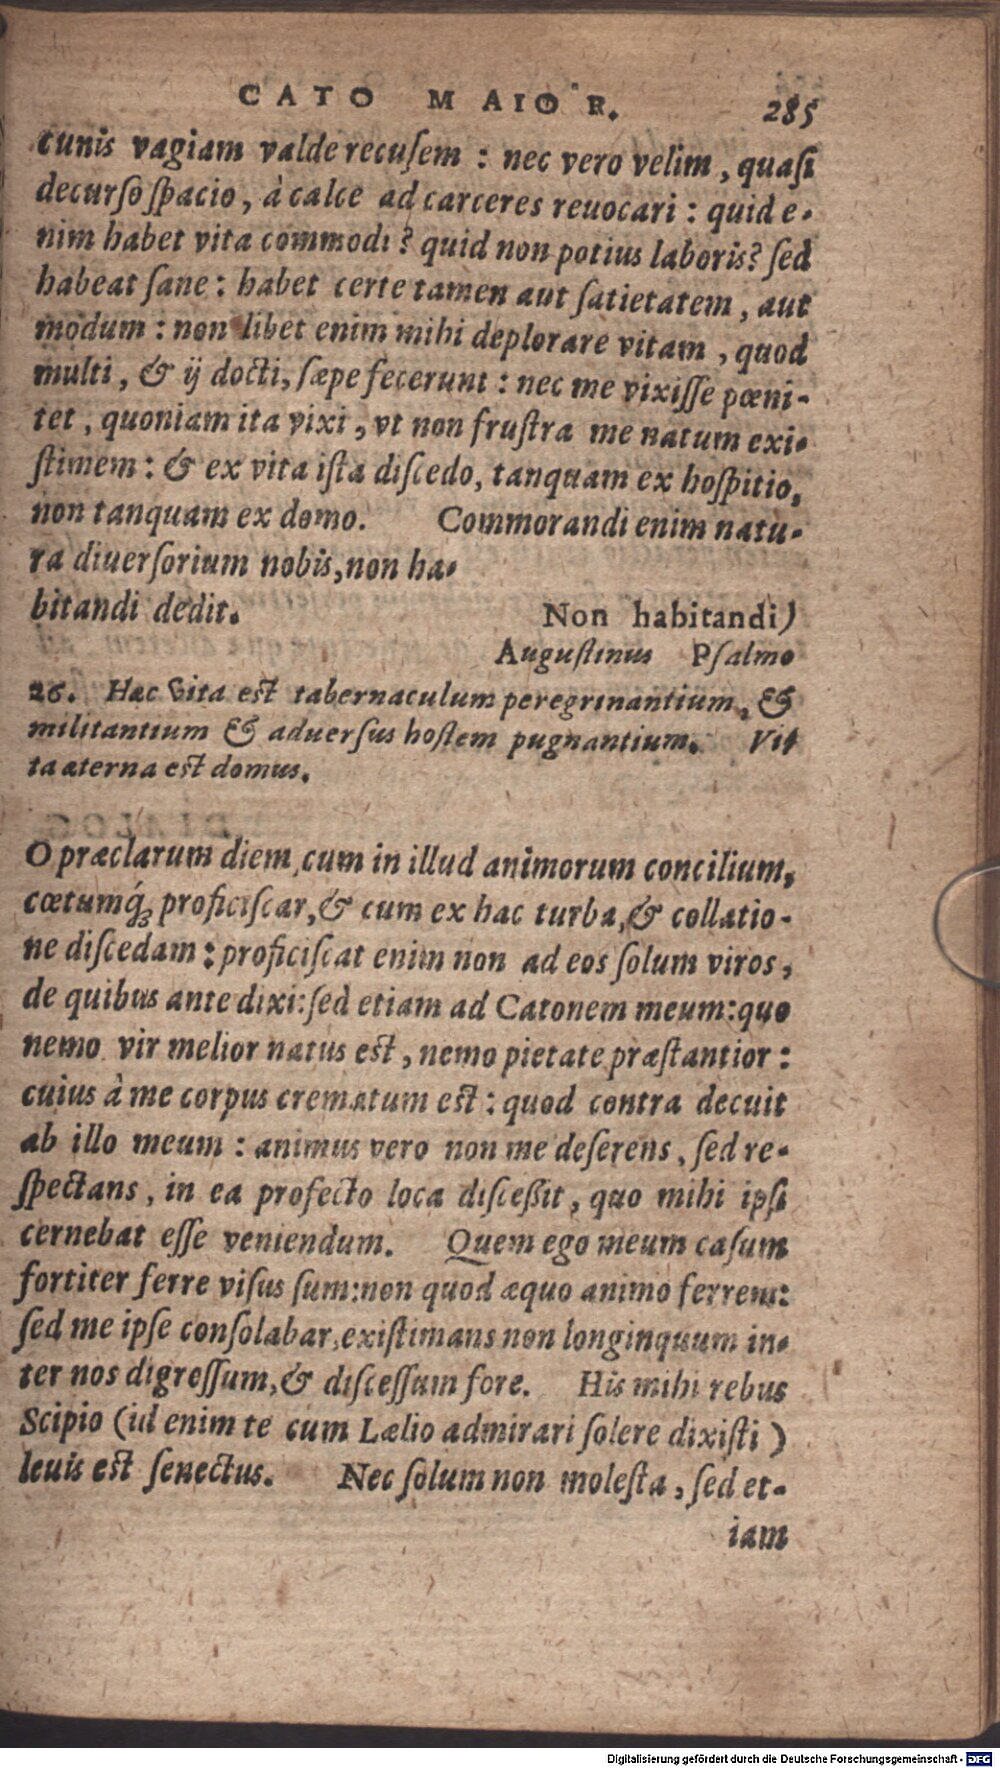 CATO MAIOR. 285
cunis vagiam valde recuſem : nec vero velim , quaſi
decurſo ſpacio , à calce ad carceres reuocari : quid e-
nim habet vita commodi ? quid non potius laboris? ſed
habeat ſane : habet certe tamen aut ſatietatem , aut
modum : non libet enim mihi deplorare vitam , quod
multi , & ij docti, ſæpe fecerunt : nec me vixiſſe pœni-
tet , quoniam ita vixi , vt non fruſtra me natum exi-
ſtimem : & ex vita iſta diſcedo, tanquam ex hoſpitio,
non tanquam ex domo. Commorandi enim natu-
ra diuerſorium nobis, non ha-
bitandi dedit. Non habitandi)
Auguſtinus Pſalmo
26. Hæc vita est tabernaculum peregrinantium, &
militantium & aduerſus hoſtem pugnantium. Vit
ta æterna est domus.
O præclarum diem, cum in illud animorum concilium,
cœtumq́; proficiſcar, & cum ex hac turba, & collatio-
ne diſcedam : proficiſcat enim non ad eos ſolum viros ,
de quibus ante dixi: ſed etiam ad Catonem meum: quo
nemo vir melior natus est , nemo pietate præſtantior :
cuius à me corpus crematum est : quod contra decuit
ab illo meum : animus vero non me deſerens , ſed re-
ſpectans , in ea profecto loca diſceßit , quo mihi ipſi
cernebat eſſe veniendum. Quem ego meum caſum
fortiter ferre viſus ſum: non quod æquo animo ferrem:
ſed me ipſe conſolabar, exiſtimans non longinquum in-
ter nos digreſſum, & diſceſſum fore. His mihi rebus
Scipio (id enim te cum Lælio admirari ſolere dixiſti )
leuis est ſenectus. Nec ſolum non moleſta , ſed et-
iam
Digitalisierung gefördert durch die Deutsche Forschungsgemeinschaft - DFG